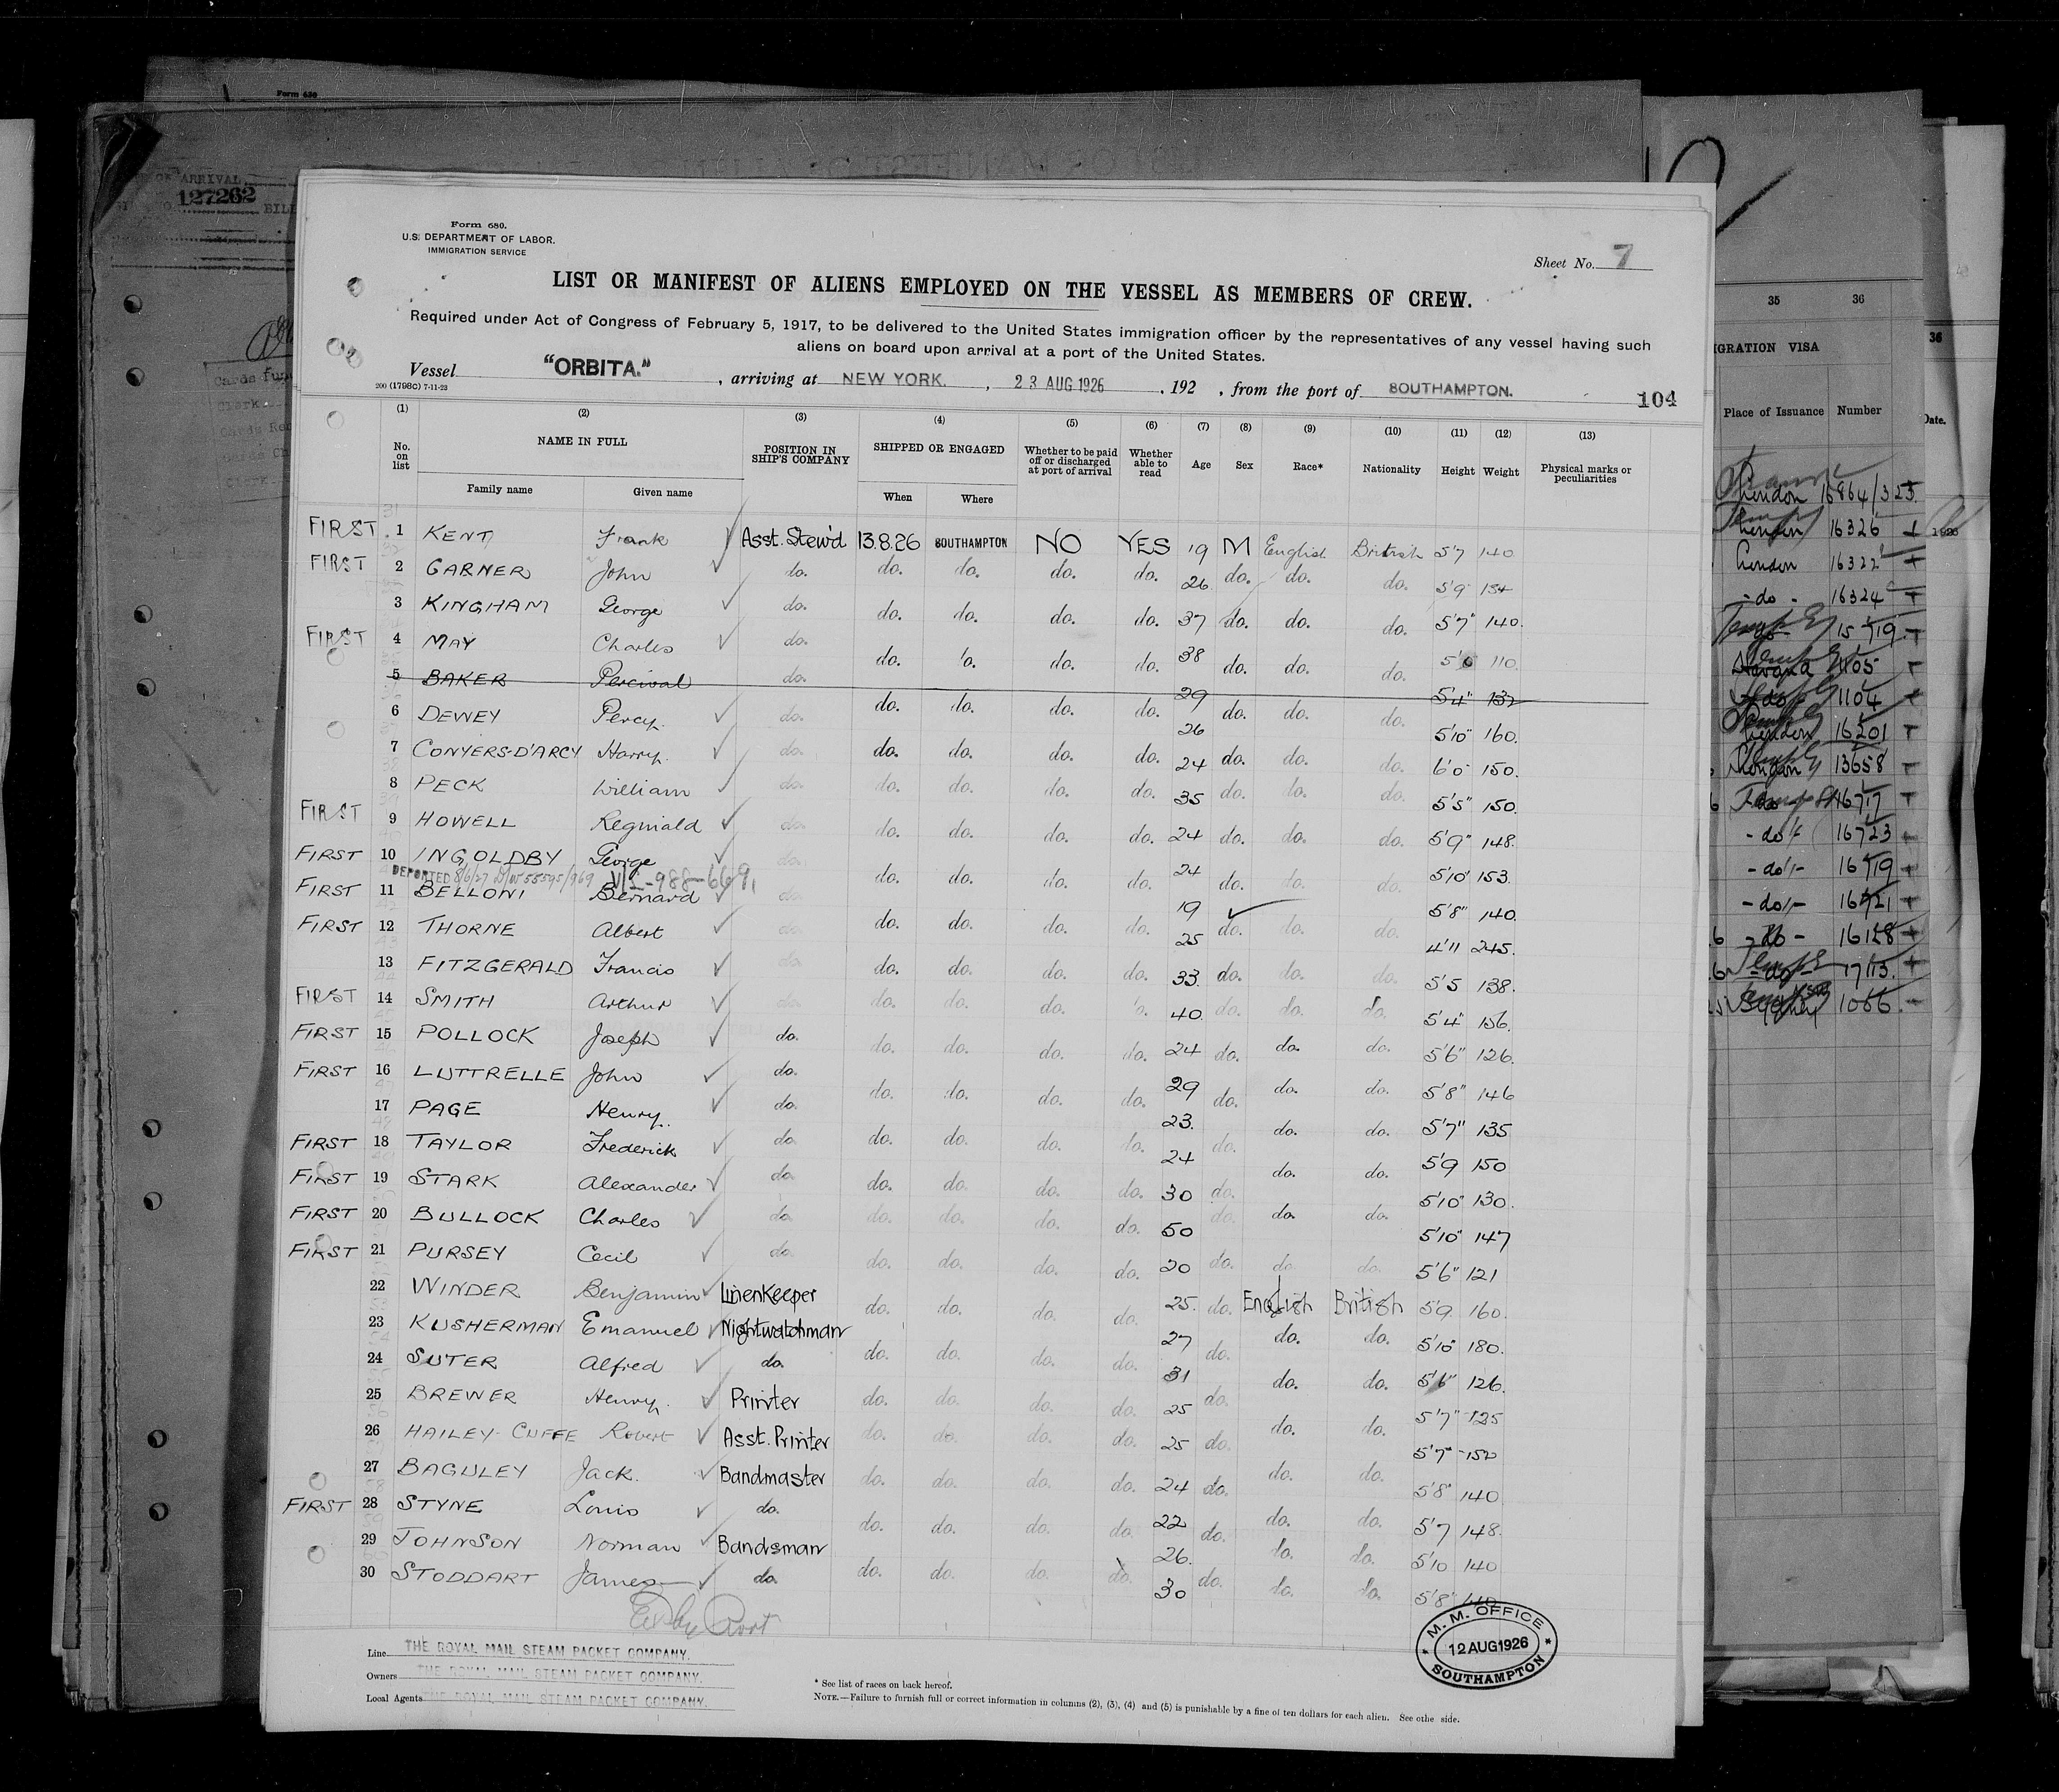 Form 630
OF ARRIVAL
127262
Form 680.
U.S. DEPARTMENT OF LABOR.
IMMIGRATION SERVICE
Sheet No. 7
LIST OR MANIFEST OF ALIENS EMPLOYED ON THE VESSEL AS MEMBERS OF CREW.
Required under Act of Congress of February 5, 1917, to be delivered to the United States immigration officer by the representatives of any vessel having such
aliens on board upon arrival at a port of the United States.
Vessel "ORBITA." , arriving at NEW YORK. , 23 AUG 1926 , 192 , from the port of SOUTHAMPTON.
200 (1798C) 7-11-23
104
(1) (2) (3) (4) (5) (6) (7) (8) (9) (10) (11) (12) (13)
No. on list NAME IN FULL POSITION IN SHIP'S COMPANY SHIPPED OR ENGAGED Whether to be paid off or discharged at port of arrival Whether able to read Age Sex Race* Nationality Height Weight Physical marks or peculiarities
Family name Given name When Where
FIRST 1 KENT Frank Asst. Stew'd 13.8.26 SOUTHAMPTON NO YES 19 M English British 5'7 140
FIRST 2 GARNER John do. do. do. do. do. 26 do. do. do. 5'9 154
3 KINGHAM George do. do. do. do. do. 37 do. do. do. 5'7" 140.
FIRST 4 MAY Charles do. do. do. do. do. 38 do. do. do. 110.
5 BAKER Percival do. 29 5'4" 132
6 DEWEY Percy. do. do. do. do. do. 26 do. do. do. 5'10" 160.
7 CONYERS-D'ARCY Harry. do. do. do. do. do. 24 do. do. do. 6'0 150.
8 PECK William do. do. do. do. do. 35 do. do. do. 5'5" 150.
FIRST 9 HOWELL Reginald do. do. do. do. do. 24 do. do. do. 5'9" 148.
FIRST 10 INGOLDBY George do. do. do. do. do. 24 do. do. do. 5'10" 153.
DEPORTED 8/6/27
FIRST 11 BELLONI Bernard do. do. do. do. do. 19 do. do. do. 5'8" 140.
FIRST 12 THORNE Albert do. do. do. do. do. 25 do. do. do. 4'11 245.
13 FITZGERALD Francis do. do. do. do. do. 33. do. do. do. 5'5 138.
FIRST 14 SMITH Arthur do. do. do. do. do. 40. do. do. do. 5'4" 156.
FIRST 15 POLLOCK Joseph do. do. do. do. do. 24 do. do. do. 5'6" 126.
FIRST 16 LUTTRELLE John do. do. do. do. do. 29 do. do. do. 5'8" 146
17 PAGE Henry. do. do. do. do. do. 23. do. do. do. 5'7" 135
FIRST 18 TAYLOR Frederick do. do. do. do. do. 24 do. do. do. 5'9 150
FIRST 19 STARK Alexander do. do. do. do. do. 30 do. do. do. 5'10" 130.
FIRST 20 BULLOCK Charles do. do. do. do. do. 50 do. do. do. 5'10" 147
FIRST 21 PURSEY Cecil do. do. do. do. do. 20 do. do. do. 5'6" 121
22 WINDER Benjamin Linenkeeper do. do. do. do. 25. do. English British 5'9. 160.
23 KUSHERMAN Emanuel Nightwatchman do. do. do. do. 27 do. do. do. 5'10" 180.
24 SUTER Alfred do. do. do. do. do. 31 do. do. do. 5'6" 126.
25 BREWER Henry. Printer do. do. do. do. 25 do. do. do. 5'7" 125
26 HAILEY-CUFFE Robert Asst. Printer do. do. do. do. 25 do. do. do. 5'7" 150
27 BAGULEY Jack. Bandmaster do. do. do. do. 24 do. do. do. 5'8" 140.
FIRST 28 STYNE Louis do. do. do. do. do. 22 do. do. do. 5'7 148.
29 JOHNSON Norman Bandsman do. do. do. do. 26. do. do. do. 5'10 140
30 STODDART James do. do. do. do. do. 30 do. do. do. 5'8"
M. M. OFFICE
12 AUG 1926
SOUTHAMPTON
Line THE ROYAL MAIL STEAM PACKET COMPANY.
Owners THE ROYAL MAIL STEAM PACKET COMPANY.
Local Agents THE ROYAL MAIL STEAM PACKET COMPANY.
* See list of races on back hereof.
NOTE.—Failure to furnish full or correct information in columns (2), (3), (4) and (5) is punishable by a fine of ten dollars for each alien. See othe side.
35 36
IGRATION VISA
36
Place of Issuance Number
Date.
London 16864/323
London 16326
London 16322
- do - 16324
1105
1104
London 16201
London 13658
16717
- do - 16723
- do - 16719
- do - 16721
- do - 16128
- do - 1713.
Sydney 1066.